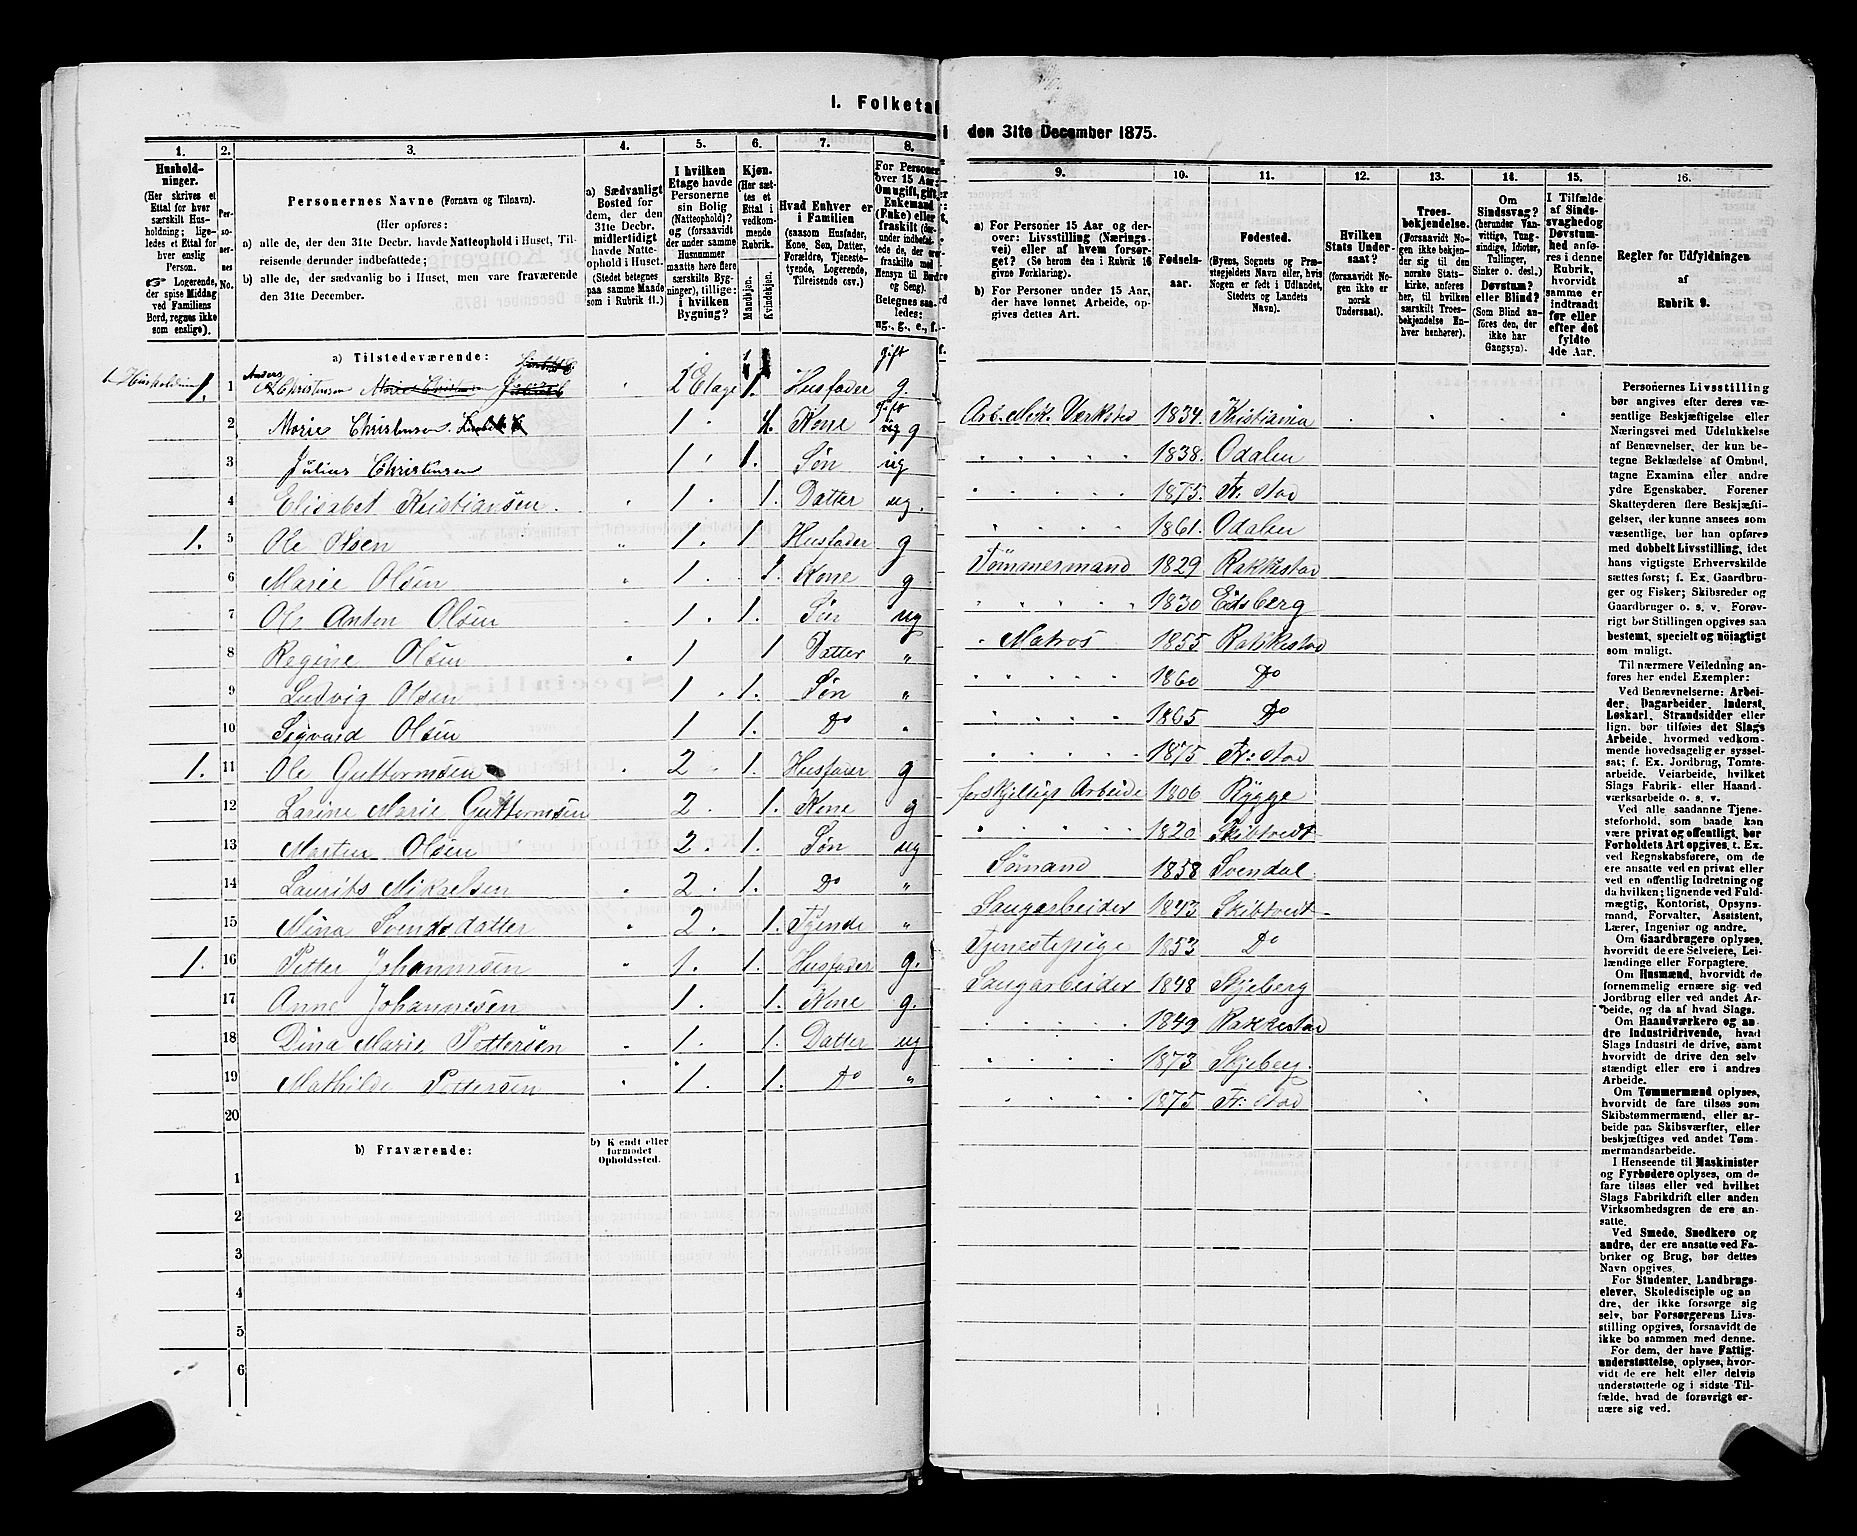 I. Folketal
i den 31te December 1875.
1.
2.
3.
4.
5.
6.
7.
8.
9.
10.
11.
12.
13.
14.
15.
16.
Hushold-
ninger.
(Her skrives et
Ettal for hver
særskilt Hus-
holdning; lige-
ledes et Ettal for
hver enslig
Person.
Logerende,
der spise Middag
ved Familiens
Bord, regnes ikke
som enslige).
Per-
so-
ner-
nes
No.
Personernes Navne (Fornavn og Tilnavn).
(Her opføres:
a) alle de, der den 31te Decbr. havde Natteophold i Huset, Til-
reisende derunder indbefattede;
b) alle de, der sædvanlig bo i Huset, men vare fraværende
den 31te December.
a) Sædvanligt
Bosted for
dem, der den
31te Decbr.
midlertidigt
havde Natte-
ophold i Huset.
(Stedet betegnes
paa samme Maade
som i Rubrik 11.)
I hvilken
Etage havde
Personerne
sin Bolig
(Natteophold)?
og (forsaavidt
der under samme
Husnummer
maatte høre flere
særskilte Byg-
ninger), tillige:
i hvilken
Bygning?
Kjøn.
(Her sæt-
tes et
Ettal i
vedkom-
mende
Rubrik.
Mandkjøn.
Kvindekjøn.
Hvad Enhver er
i Familien
(saasom Husfader,
Kone, Søn, Datter,
Forældre, Tjeneste-
tyende, Logerende,
Tilreisende osv.)
For Personer
over 15 Aar:
Om ugift, gift,
Enkemand
(Enke) eller
fraskilt
Betegnes saa-
ledes:
ug., g., e., f.
a) For Personer 15 Aar og der-
over: Livsstilling (Nærings-
vei) eller af hvem forsør-
get? (Se herom den i Rubrik 16
givne Forklaring).
b) For Personer under 15 Aar,
der have lønnet Arbeide, op-
gives dettes Art.
Fødsels-
aar.
Fødested.
(Byens, Sognets og Præ-
stegjeldets Navn eller, hvis
Nogen er født i Udlandet,
Stedets og Landets
Navn).
Hvilken
Stats Under-
saat?
(forsaavidt No-
gen ikke er
norsk
Undersaat).
Troes-
bekjendelse.
(Forsaavidt No-
gen ikke bekjen-
der sig til den
norske Stats-
kirke, anføres
her, til hvilken
særskilt Troes-
bekjendelse En-
hver henhører).
Om
Sindssvag?
(herunder Van-
vittige, Tung-
sindige, Idioter,
Tullinger,
Sinker o. desl.)
Døvstum?
eller Blind?
(Som Blind an-
føres den, der
ikke har
Gangsyn).
I Tilfælde
af Sinds-
svaghed og
Døvstum-
hed anfø-
res i denne
Rubrik,
hvorvidt
samme er
indtraadt
før eller
efter det
fyldte
4de Aar.
Regler for Udfyldningen
af
Rubrik 9.
a) Tilstedeværende:
1. 1 Anders Christensen 2 Etage 1. Husfader gift g.
2 Marie Christensen 1 1. Kone gift g
3 Julius Christensen 1 1. Søn ug
4 Elisabet Kristiansen 1 1. Datter ug.
1. 5 Ole Olsen 1. 1 Husfader g
6 Marie Olsen 1. 1. Kone g
7 Ole Anton Olsen 1. 1. Søn ug
8 Regine Olsen 1 1 Datter "
9 Ludvig Olsen 1 1. Søn "
10 Sigvard Olsen 1 1. Do "
1. 11 Ole Guttormsen 2 1. Husfader g
12 Larine Marie Guttormsen 2. 1. Kone g
13 Morten Olsen 2. 1. Søn ug
14 Laurits Mikaelsen 2. 1. Do "
15 Mina Svendsdatter 2. 1. Tyende "
1. 16 Petter Johannesen 1. 1. Husfader g.
17 Anne Johannesen 1. 1. Kone g.
18 Dina Marie Pettersen 1. 1. Datter ug
19 Mathilde Pettersen 1. 1. Do "
20
Arb. Mek. Værksted 1834. Kristiania
" 1838. Odalen
" 1875. Fr. stad
" 1861. Odalen
Tømmermand 1829 Rakkestad
" 1830 Edsberg
Matros 1855 Rakkestad
1860 Do
" 1865 Do
" 1875 Fr: stad
forskjelligt Arbeide 1806 Rygge
" 1820 Skibtvedt
Sømand 1858 Svendal
Saugarbeider 1843 Skibtvedt
Tjenestepige 1853 Do
Saugarbeider 1848 Skjeberg
" 1849 Rakkestad
" 1873 Skjeberg.
" 1875 Fr: stad
b) Fraværende:
b) Kjendt eller
formodet
Opholdssted.
1
2
3
4
5
6
Personernes Livsstilling
bør angives efter deres væ-
sentlige Beskjæftigelse eller
Næringsvei med Udelukkelse
af Benævnelser, der kun be-
tegne Beklædelse af Ombud,
tagne Examina eller andre
ydre Egenskaber. Forener
Skatteyderen flere Beskjæfti-
gelser, der kunne ansees som
væsentlige, bør han opføres
med dobbelt Livsstilling, idet
hans vigtigste Erhvervskilde
sættes først; f. Ex. Gaardbru-
ger og Fisker; Skibsreder og
Gaardbruger o. s. v. Forøv-
rigt bør Stillingen opgives saa
bestemt, specielt og nöiagtigt
som muligt.
Til nærmere Veiledning an-
føres her endel Exempler:
Ved Benævnelserne: Arbei-
der, Dagarbeider, Inderst,
Løskarl, Strandsidder eller
lign. bør tilføies det Slags
Arbeide, hvormed vedkom-
mende hovedsagelig er syssel-
sat; f. Ex. Jordbrug, Tomte-
arbeide, Veiarbeide, hvilket
Slags Fabrik- eller Haand-
værksarbeide o. s. v.
Ved alle saadanne Tjene-
steforhold, som baade kan
være privat og offentligt, bør
Forholdets Art opgives, t. Ex.
ved Regnskabsførere, om de
ere ansatte ved en privat eller
ved en offentlig Indretning og
da hvilken; lignende ved Fuld-
mægtig, Kontorist, Opsyns-
mand, Forvalter, Assistent,
Lærer, Ingeniør og andre.
Om Gaardbrugere oplyses,
hvorvidt de ere Selveiere, Lei-
lændinge eller Forpagtere.
Om Husmænd, hvorvidt de
fornemmelig ernære sig ved
Jordbrug eller ved andet Ar-
beide, og da af hvad Slags.
Om Haandværkere og an-
dre Industridrivende, hvad
Slags Industri de drive, samt
hvorvidt de drive den selv-
stændigt eller ere i andres
Arbeide.
Om Tømmermænd oplyses,
hvorvidt de fare tilsøs som
Skibstømmermænd, eller ar-
beide paa Skibsværfter, eller
beskjæftiges ved andet Tøm-
mermandsarbeide.
I Henseende til Maskinister
og Fyrbødere oplyses, om de
fare tilsøs eller ved hvilket
Slags Fabrikdrift eller anden
Virksomhedsgren de ere an-
satte.
Ved Smede, Snedkere og
andre, der ere ansatte ved Fa-
briker og Brug, bør dettes
Navn opgives.
For Studenter, Landbrugs-
elever, Skoledisciple og an-
dre, der ikke forsørge sig
selv, bør Forsørgerens Livs-
stilling opgives, forsaavidt de
ikke bo sammen med denne.
For dem, der have Fattig-
understøttelse, oplyses, hvor-
vidt de ere helt eller delvis
understøttede og i sidste Til-
fælde, hvad de forøvrigt er-
nære sig ved.